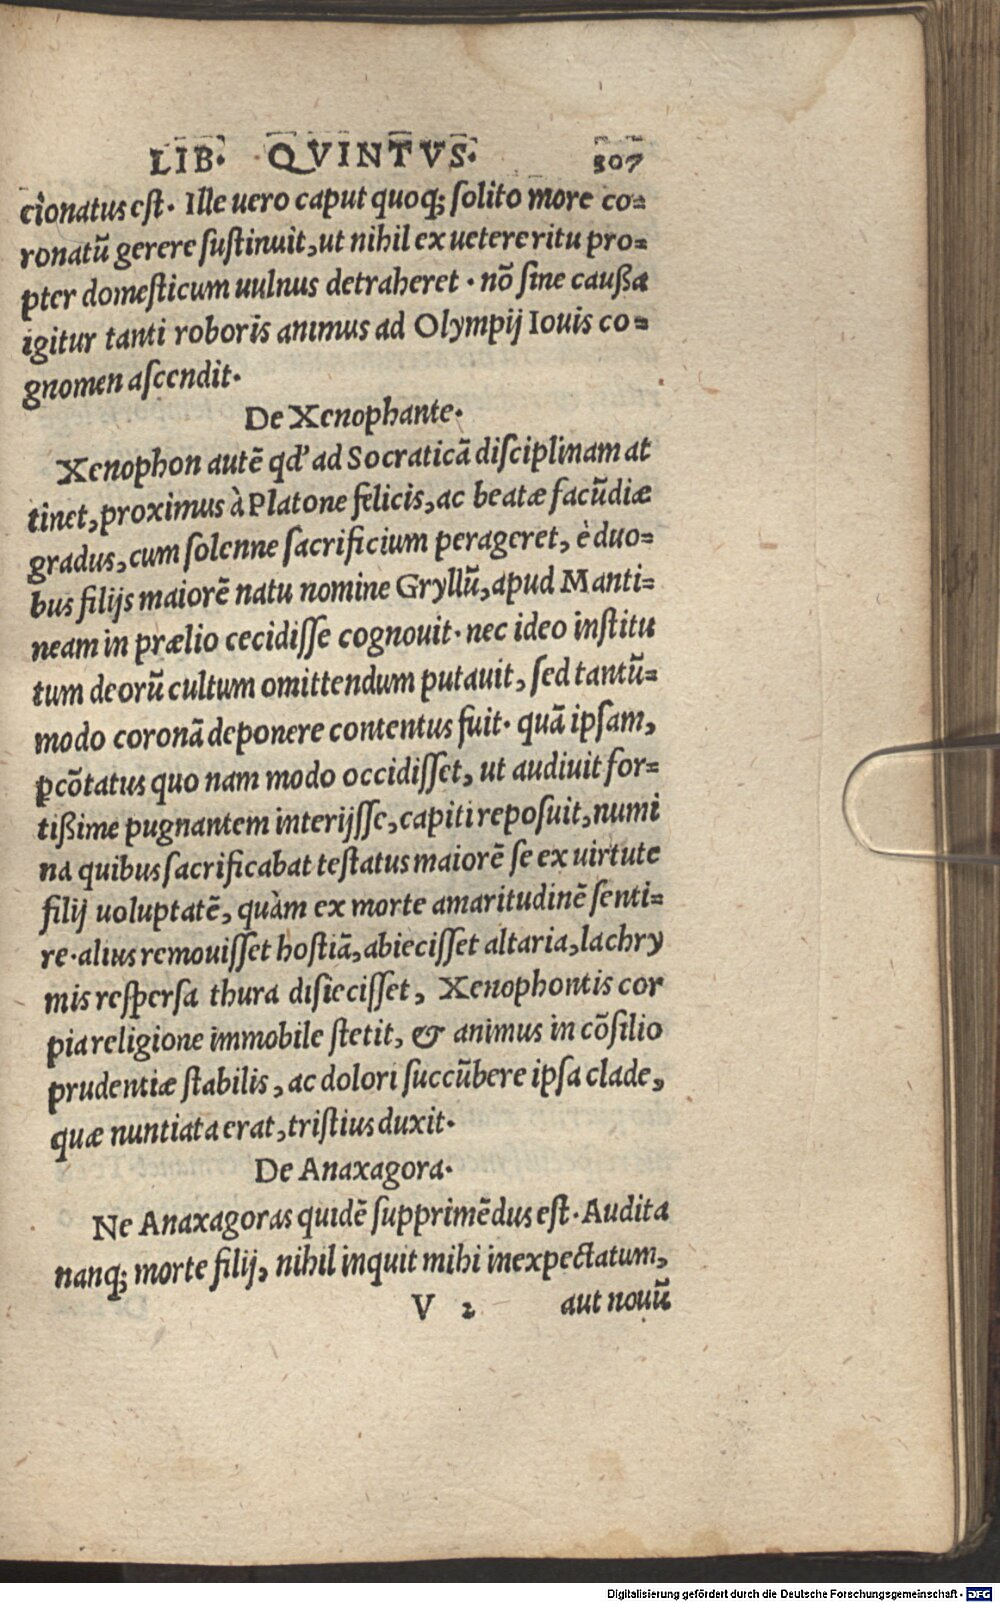 LIB. QVINTVS. 307
cionatus est. Ille uero caput quoq; solito more co=
ronatũ gerere sustinuit, ut nihil ex uetere ritu pro=
pter domesticum uulnus detraheret. nõ sine caußa
igitur tanti roboris animus ad Olympij Iouis co=
gnomen ascendit.
De Xenophante.
Xenophon autẽ qd' ad Socraticã disciplinam at
tinet, proximus à Platone felicis, ac beatæ facũdiæ
gradus, cum solenne sacrificium perageret, è duo=
bus filijs maiorẽ natu nomine Gryllũ, apud Manti=
neam in prælio cecidisse cognouit. nec ideo institu
tum deorũ cultum omittendum putauit, sed tantũ=
modo coronã deponere contentus fuit. quã ipsam,
ꝑcõtatus quo nam modo occidisset, ut audiuit for=
tißime pugnantem interijsse, capiti reposuit, numi
na quibus sacrificabat testatus maiorẽ se ex uirtute
filij uoluptatẽ, quàm ex morte amaritudinẽ senti=
re. alius remouisset hostiã, abiecisset altaria, lachry
mis respersa thura disiecisset, Xenophontis cor
pia religione immobile stetit, & animus in cõsilio
prudentiæ stabilis, ac dolori succũbere ipsa clade,
quæ nuntiata erat, tristius duxit.
De Anaxagora.
Ne Anaxagoras quidẽ supprimẽdus est. Audita
nanq; morte filij, nihil inquit mihi inexpectatum,
V 2 aut nouũ
Digitalisierung gefördert durch die Deutsche Forschungsgemeinschaft - DFG